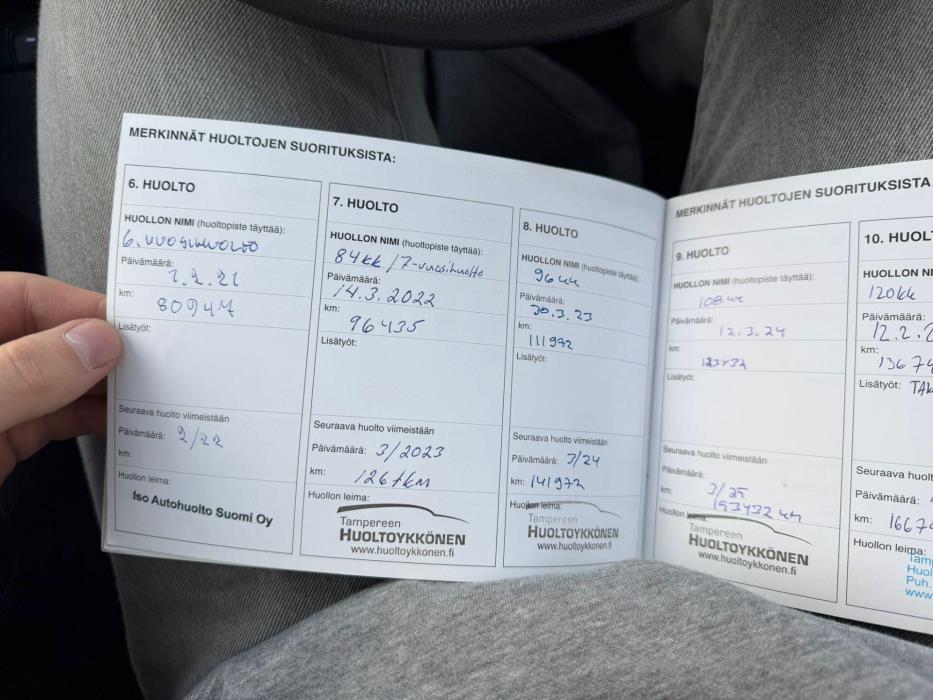 MERKINNÄT HUOLTOJEN SUORITUKSISTA:
6. HUOLTO
HUOLLON NIMI (huoltopiste täyttää):
6. vuosihuolto
Päivämäärä:
2.21
km:
80947
Lisätyöt:
Seuraava huolto viimeistään
Päivämäärä: 2/22
km:
Huollon leima:
Iso Autohuolto Suomi Oy
7. HUOLTO
HUOLLON NIMI (huoltopiste täyttää):
84kk / 7-vuosihuolto
Päivämäärä:
14.3.2022
km:
96435
Lisätyöt:
Seuraava huolto viimeistään
Päivämäärä: 3/2023
km: 126tkm
Huollon leima:
Tampereen
HUOLTOYKKÖNEN
www.huoltoykkonen.fi
8. HUOLTO
HUOLLON NIMI (huoltopiste täyttää):
96kk
Päivämäärä:
30.3.23
km:
111972
Lisätyöt:
Seuraava huolto viimeistään
Päivämäärä: 3/24
km: 141972
Huollon leima:
Tampereen
HUOLTOYKKÖNEN
www.huoltoykkonen.fi
MERKINNÄT HUOLTOJEN SUORITUKSISTA
9. HUOLTO
HUOLLON NIMI (huoltopiste täyttää):
108kk
Päivämäärä:
12.3.24
km:
123432
Lisätyöt:
Seuraava huolto viimeistään
Päivämäärä:
3/25
km: 153432 km
Huollon leima:
Tampereen
HUOLTOYKKÖNEN
www.huoltoykkonen.fi
10. HUOLT
HUOLLON NIMI
120kk
Päivämäärä:
12.2.2
km:
13674
Lisätyöt: TAK
Seuraava huolto
Päivämäärä:
km: 16674
Huollon leima:
Tam
Huol
Puh.
www